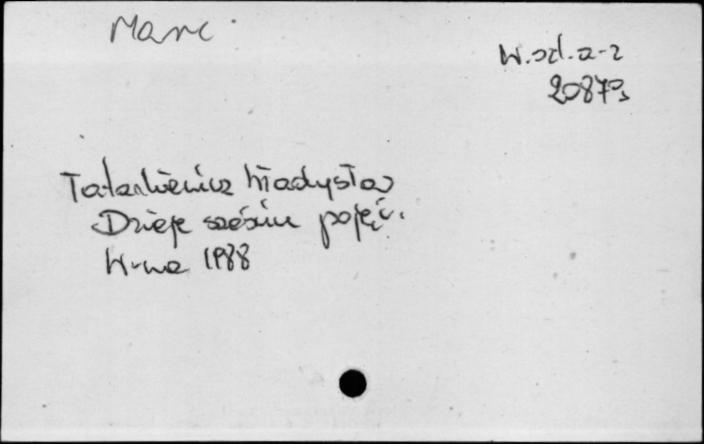 Marc
W.szt.a-z
20879
Tatarkiewicz Władysław
Dzieje sześciu pojęć.
W-wa 1988